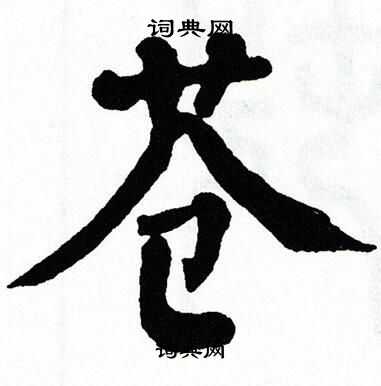 词典网
苍
词典网